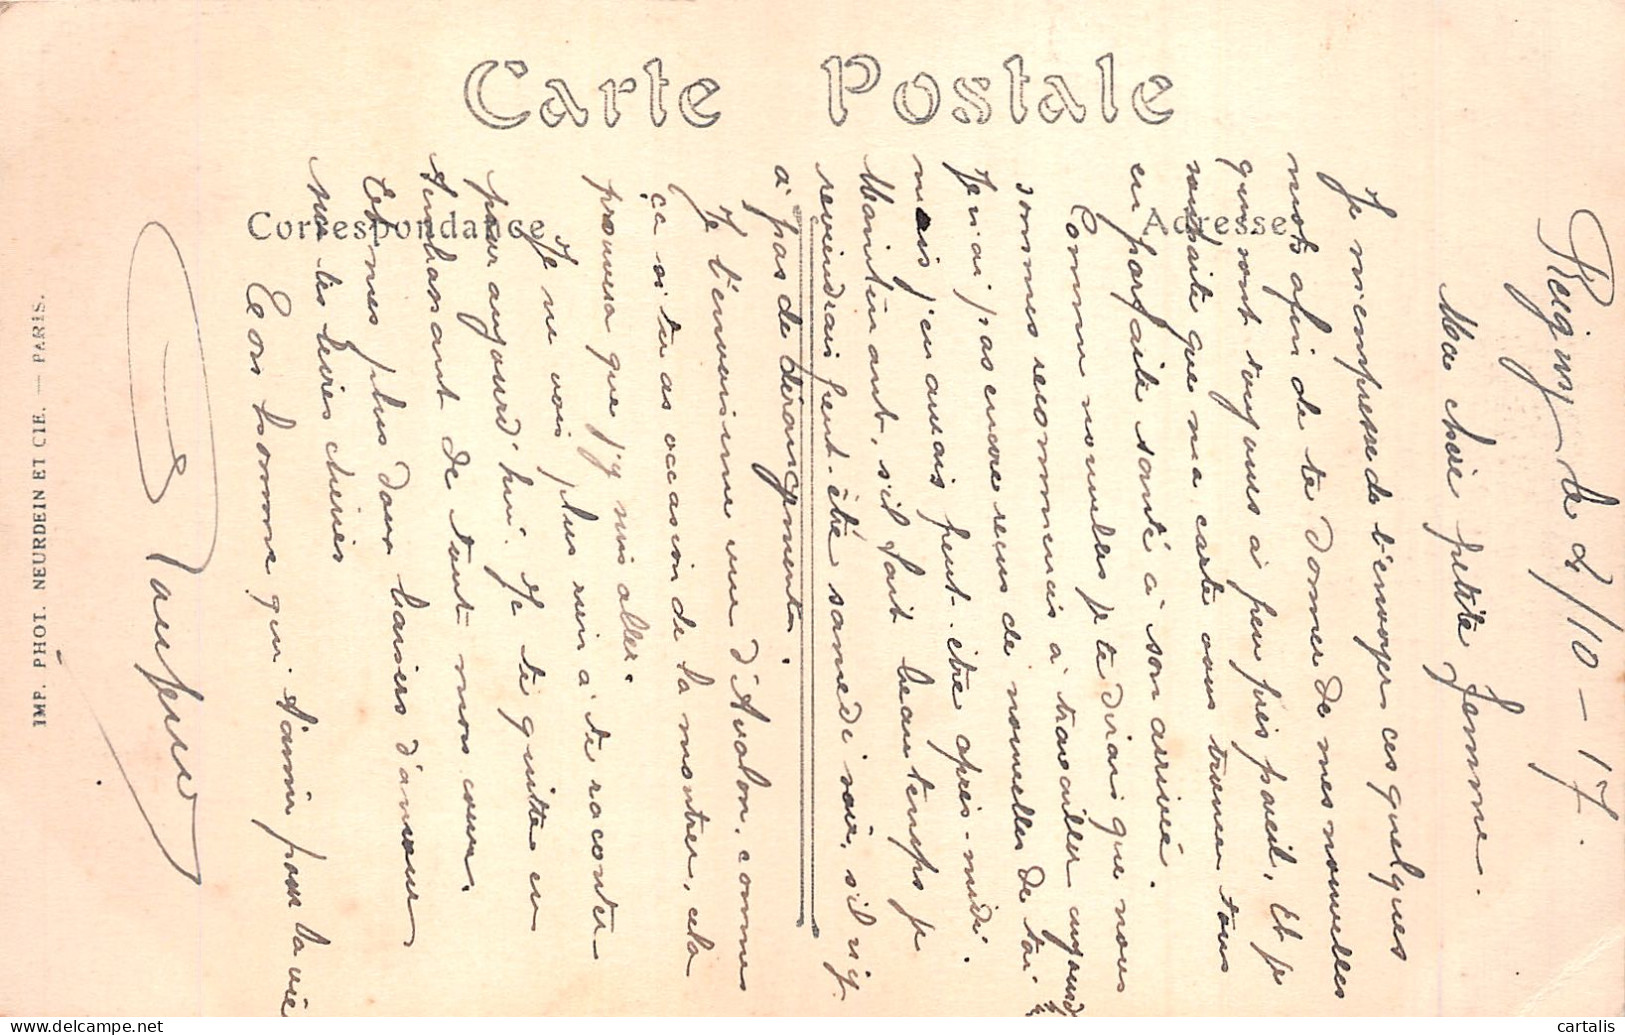 Carte Postale
Correspondance
Adresse
IMP. PHOT. NEURDEIN ET CIE. — PARIS.
Reigny le 2/10 - 17.
Ma chère petite femme.
Je m'empresse de t'envoyer ces quelques
mots afin de te donner de mes nouvelles
qui sont toujours à peu près pareil, Et je
souhaite que ma carte vous trouver tous
en parfaite santé à son arrivée.
Comme nouvelles je te dirai que nous
sommes recommencés à travailler aujourd'hui
Je n'ai pas encore reçus de nouvelles de toi
mais j'en aurais peut-être après-midi.
Maintenant, s'il fait beau temps je
reviendrais peut-être samedi soir, s'il n'y
a pas de dérangements.
Je t'envoie une vue d'Avalon, comme
ça si tu as occasion de la montrer, cela
prouvera que j'y suis aller.
Je ne vois plus rien à te raconter
pour aujourd'hui. Je te quitte en
Embrassant de tout mon cœur.
Et mes plus doux baisers d'amour
sur tes lèvres chéries
Ton homme qui t'aime pour la vie